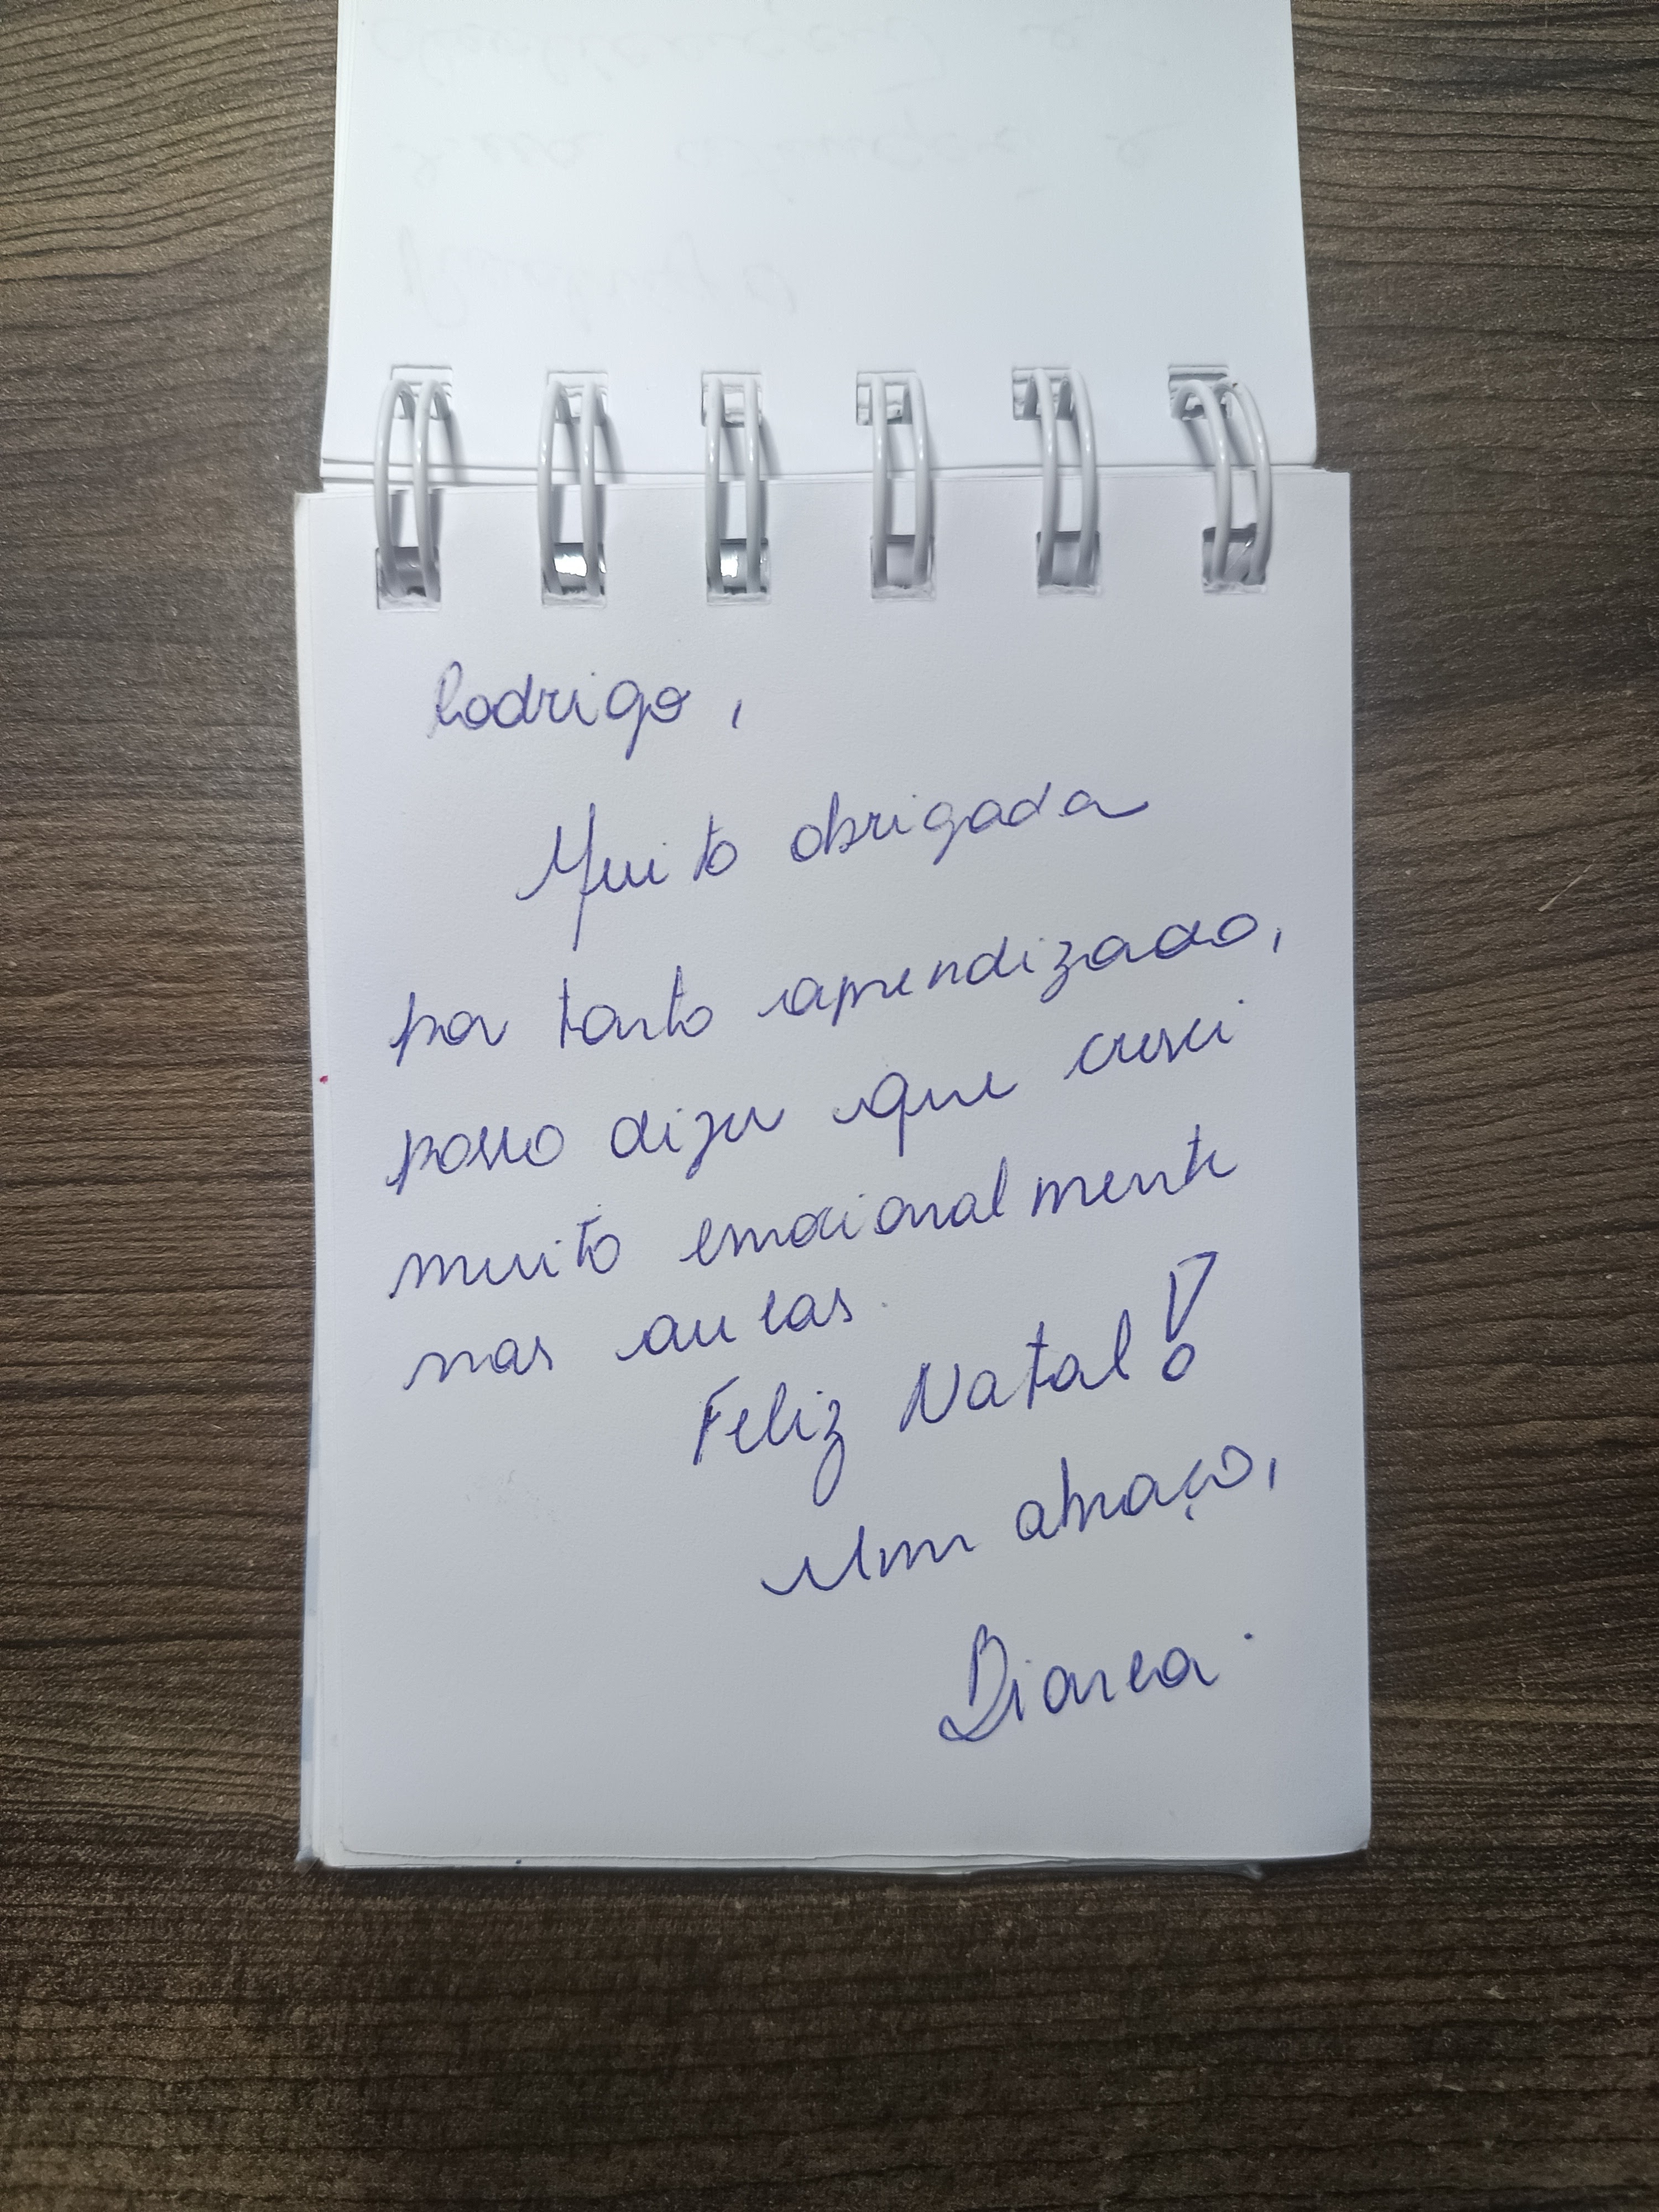 Rodrigo,
Muito obrigada
por tanto aprendizado,
posso dizer que cresci
muito emocionalmente
nas aulas.
Feliz Natal!
Um abraço,
Bianca.